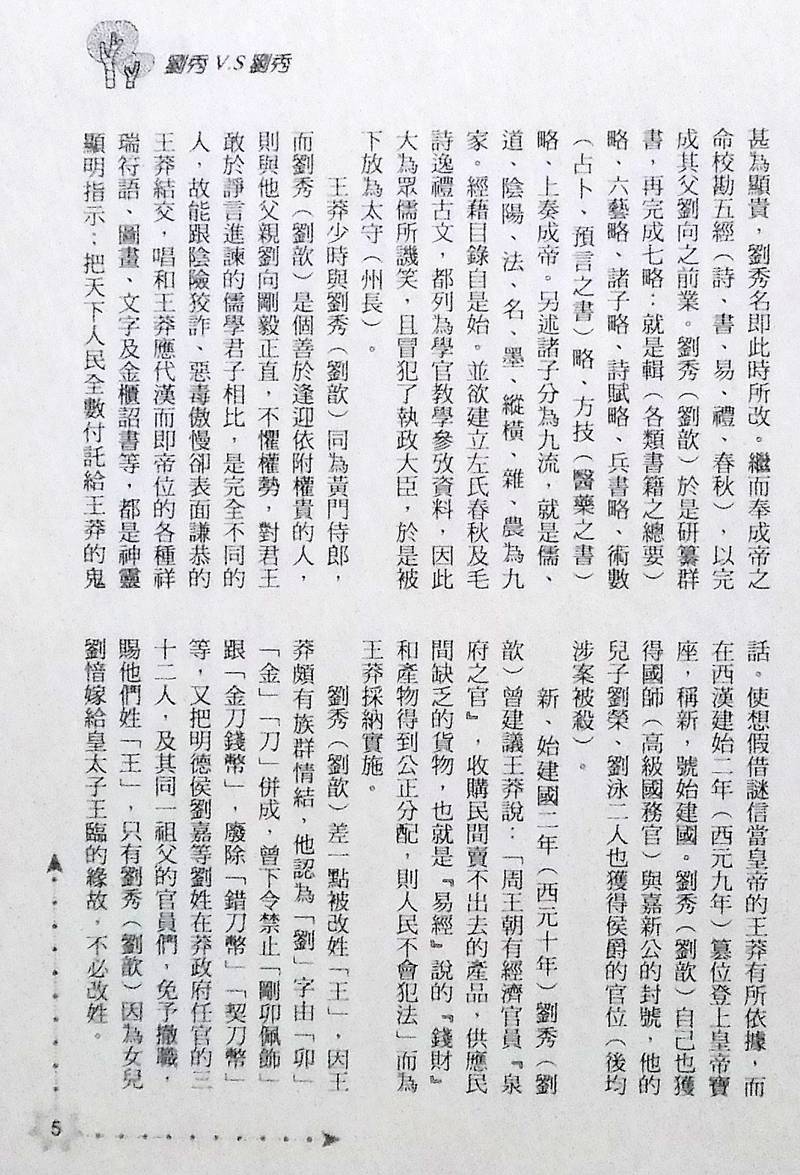 劉秀 V.S 劉秀
甚為顯貴，劉秀名即此時所改。繼而奉成帝之
命校勘五經（詩、書、易、禮、春秋），以完
成其父劉向之前業。劉秀（劉歆）於是研纂群
書，再完成七略：就是輯（各類書籍之總要）
略、六藝略、諸子略、詩賦略、兵書略、術數
（占卜、預言之書）略、方技（醫藥之書）
略、上奏成帝。另述諸子分為九流，就是儒、
道、陰陽、法、名、墨、縱橫、雜、農為九
家。經藉目錄自是始。並欲建立左氏春秋及毛
詩逸禮古文，都列為學官教學參攷資料，因此
大為眾儒所譏笑，且冒犯了執政大臣，於是被
下放為太守（州長）。
王莽少時與劉秀（劉歆）同為黃門侍郎，
而劉秀（劉歆）是個善於逢迎依附權貴的人，
則與他父親劉向剛毅正直，不懼權勢，對君王
敢於諍言進諫的儒學君子相比，是完全不同的
人，故能跟陰險狡詐、惡毒傲慢卻表面謙恭的
王莽結交，唱和王莽應代漢而即帝位的各種祥
瑞符語、圖畫、文字及金櫃詔書等，都是神靈
顯明指示：把天下人民全數付託給王莽的鬼
話。使想假借謎信當皇帝的王莽有所依據，而
在西漢建始二年（西元九年）篡位登上皇帝寶
座，稱新，號始建國。劉秀（劉歆）自己也獲
得國師（高級國務官）與嘉新公的封號，他的
兒子劉棻、劉泳二人也獲得侯爵的官位（後均
涉案被殺）。
新、始建國二年（西元十年）劉秀（劉
歆）曾建議王莽說：「周王朝有經濟官員『泉
府之官』，收購民間賣不出去的產品，供應民
間缺乏的貨物，也就是『易經』說的『錢財』
和產物得到公正分配，則人民不會犯法」而為
王莽採納實施。
劉秀（劉歆）差一點被改姓「王」，因王
莽頗有族群情結，他認為「劉」字由「卯」
「金」「刀」併成，曾下令禁止「剛卯佩飾」
跟「金刀錢幣」，廢除「錯刀幣」「契刀幣」
等，又把明德侯劉嘉等劉姓在莽政府任官的三
十二人，及其同一祖父的官員們，免予撤職，
賜他們姓「王」，只有劉秀（劉歆）因為女兒
劉愔嫁給皇太子王臨的緣故，不必改姓。
5